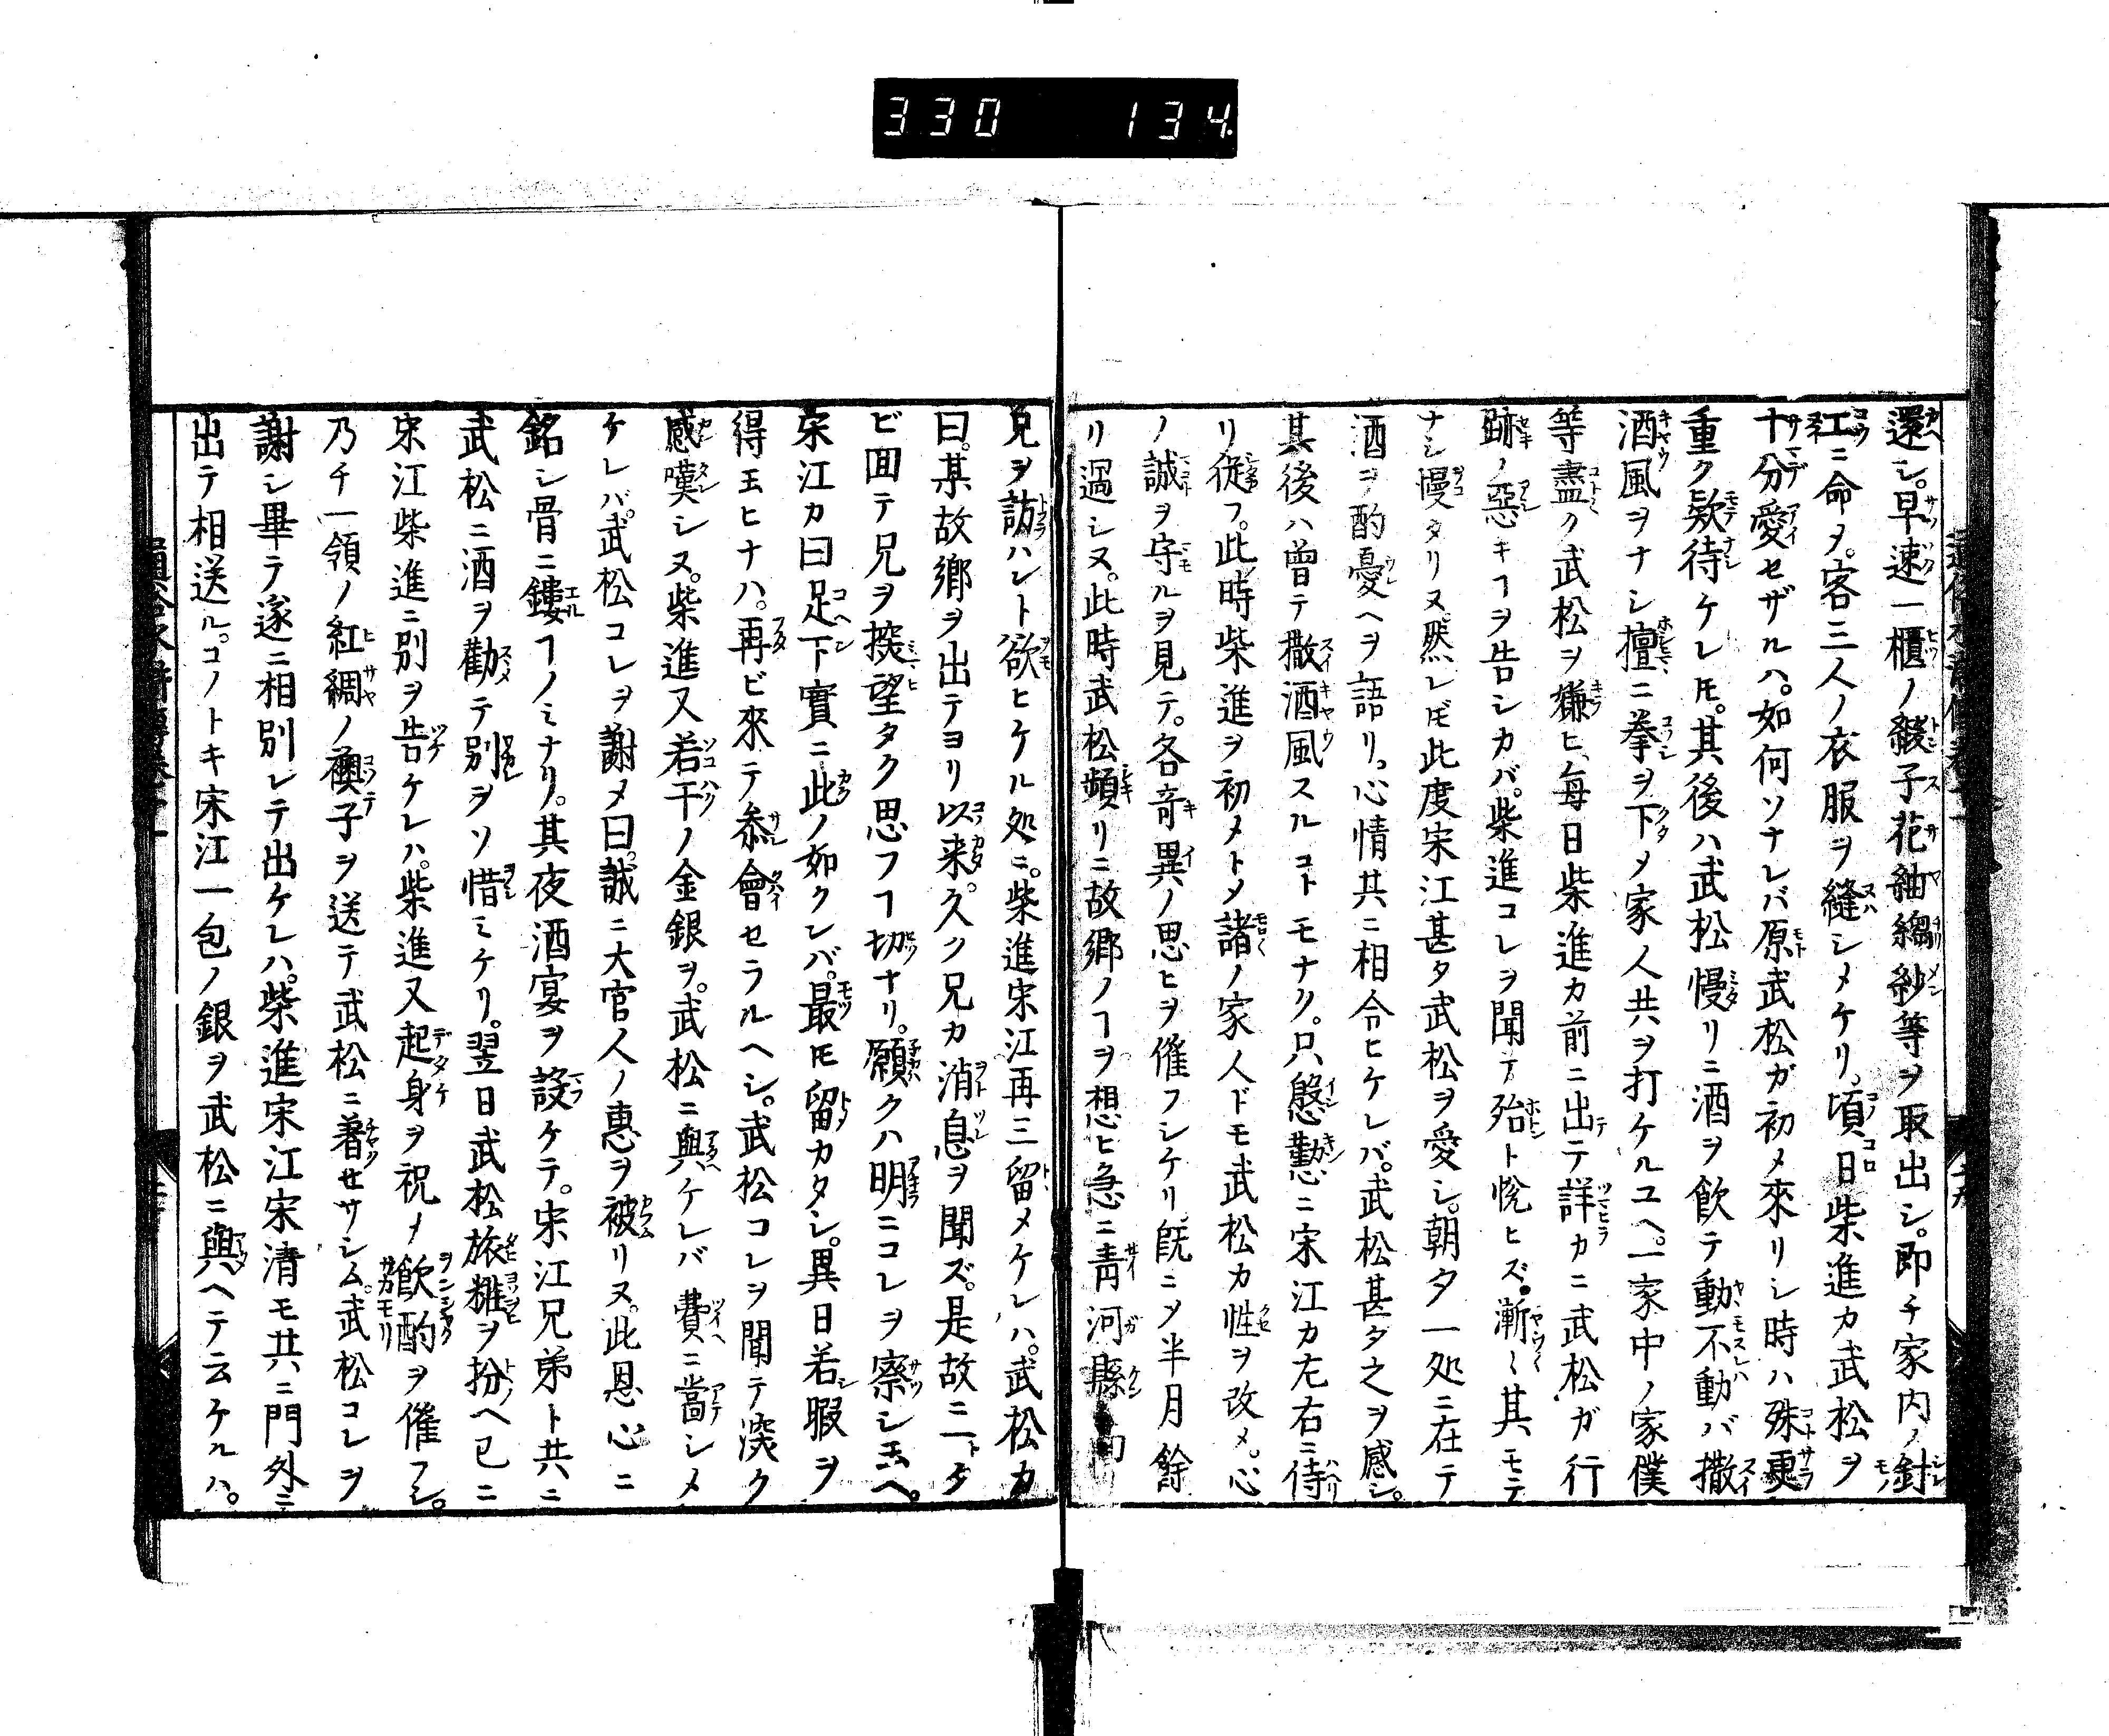 330 134
還シ。早速一櫃ノ緞子花紬縐紗等ヲ取出シ。即チ家内ノ針
工ニ命ヲ。客三人ノ衣服ヲ縫シメケリ。頃日柴進カ武松ヲ
十分愛セザルハ。如何ソナレバ原武松ガ初メ來リシ時ハ殊更
重ク欵待ケレ𪜈。其後ハ武松慢リニ酒ヲ飲テ動不動バ撒
酒風ヲナシ擅ニ拳ヲ下メ家人共ヲ打ケルユヘ。一家中ノ家僕
等盡ク武松ヲ嫌ヒ、毎日柴進カ前ニ出テ詳カニ武松ガ行
跡ノ惡キヿヲ告シカバ。柴進コレヲ聞テ殆ト悅ヒズ。漸〻其モテ
ナシ慢タリヌ然レ𪜈此度宋江甚タ武松ヲ愛シ。朝夕一処ニ在テ
酒ヲ酌憂ヘヲ語リ。心情共ニ相令ヒケレバ。武松甚タ之ヲ感シ。
其後ハ曾テ撒酒風スルコトモナク。只慇懃ニ宋江カ左右ニ侍
リ從フ。此時柴進ヲ初メトメ諸ノ家人ドモ武松カ性ヲ改メ。心
ノ誠ヲ守ルヲ見テ。各竒異ノ思ヒヲ催フシケリ既ニメ半月餘
リ過シヌ。此時武松頻リニ故郷ノヿヲ想ヒ急ニ靑河縣
兄ヲ訪ハント欲ヒケル処ニ。柴進宋江再三留メケレハ。武松カ
曰。某故郷ヲ出テヨリ以来。久ク兄カ消息ヲ聞ズ。是故ニ一トタ
ビ回テ兄ヲ探望タク思フヿ切ナリ。願クハ明ニコレヲ察シ玉ヘ。
宋江カ曰足下實ニ此ノ如クンバ。最𪜈留カタシ。異日若暇ヲ
得玉ヒナハ。再ビ來テ叅會セラルヘシ。武松コレヲ聞テ深ク
感嘆シヌ。柴進又若干ノ金銀ヲ。武松ニ與ケレバ費ニ當シメ
ケレバ。武松コレヲ謝メ曰。誠ニ大官人ノ惠ヲ被リヌ。此恩心ニ
銘シ骨ニ鏤フノミナリ。其夜酒宴ヲ設ケテ。宋江兄弟ト共ニ
武松ニ酒ヲ勸テ別ヲソ惜ミケリ。翌日武松旅粧ヲ扮ヘ已ニ
宋江柴進ニ別ヲ告ケレハ。柴進又起身ヲ祝メ飮酌ヲ催フシ。
乃チ一領ノ紅綢ノ襖子ヲ送テ武松ニ著セサシム。武松コレヲ
謝シ畢テ遂ニ相別レテ出ケレハ。柴進宋江宋清モ共ニ門外ニ
出テ相送ル。コノトキ宋江一包ノ銀ヲ武松ニ與ヘテ云ケルハ。